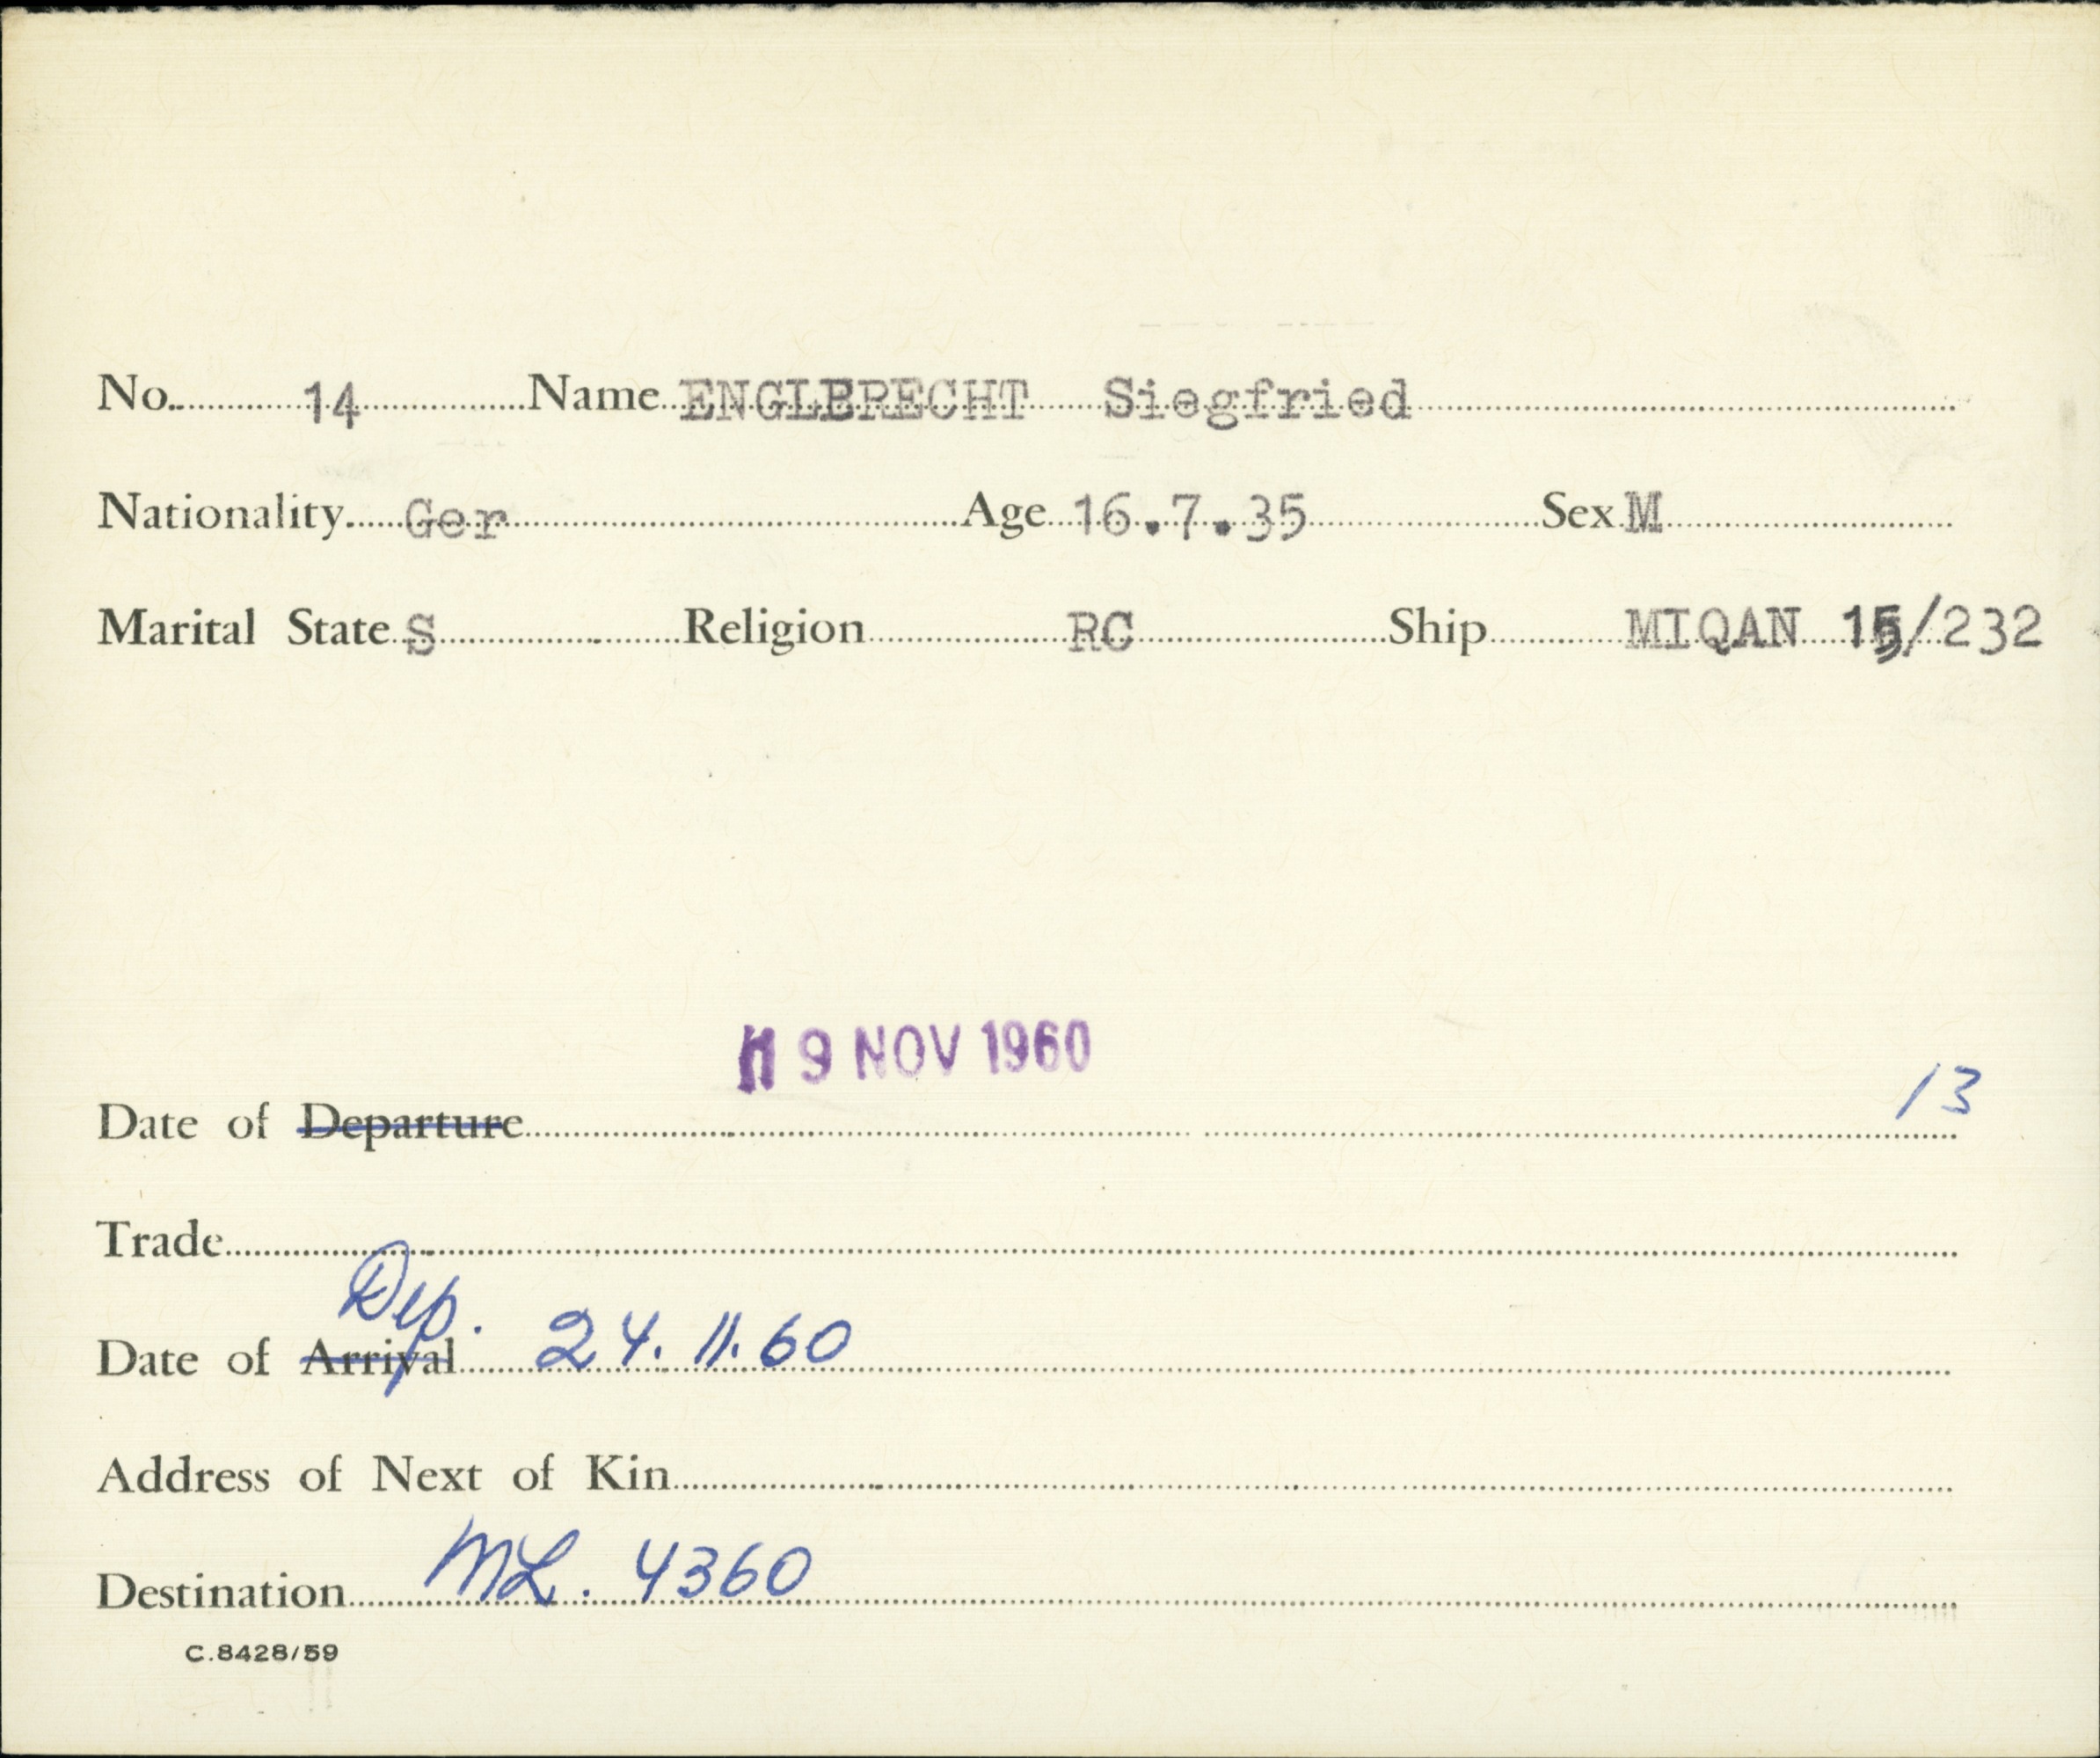 No. 14 Name ENGLBRECHT Siegfried
Nationality Ger Age 16.7.35 Sex M
Marital State S Religion RC Ship MIQAN 15/232
9 NOV 1960
13
Date of Departure
Trade
Dep.
Date of Arrival 24.11.60
Address of Next of Kin
Destination ML. 4360
C.8428/59